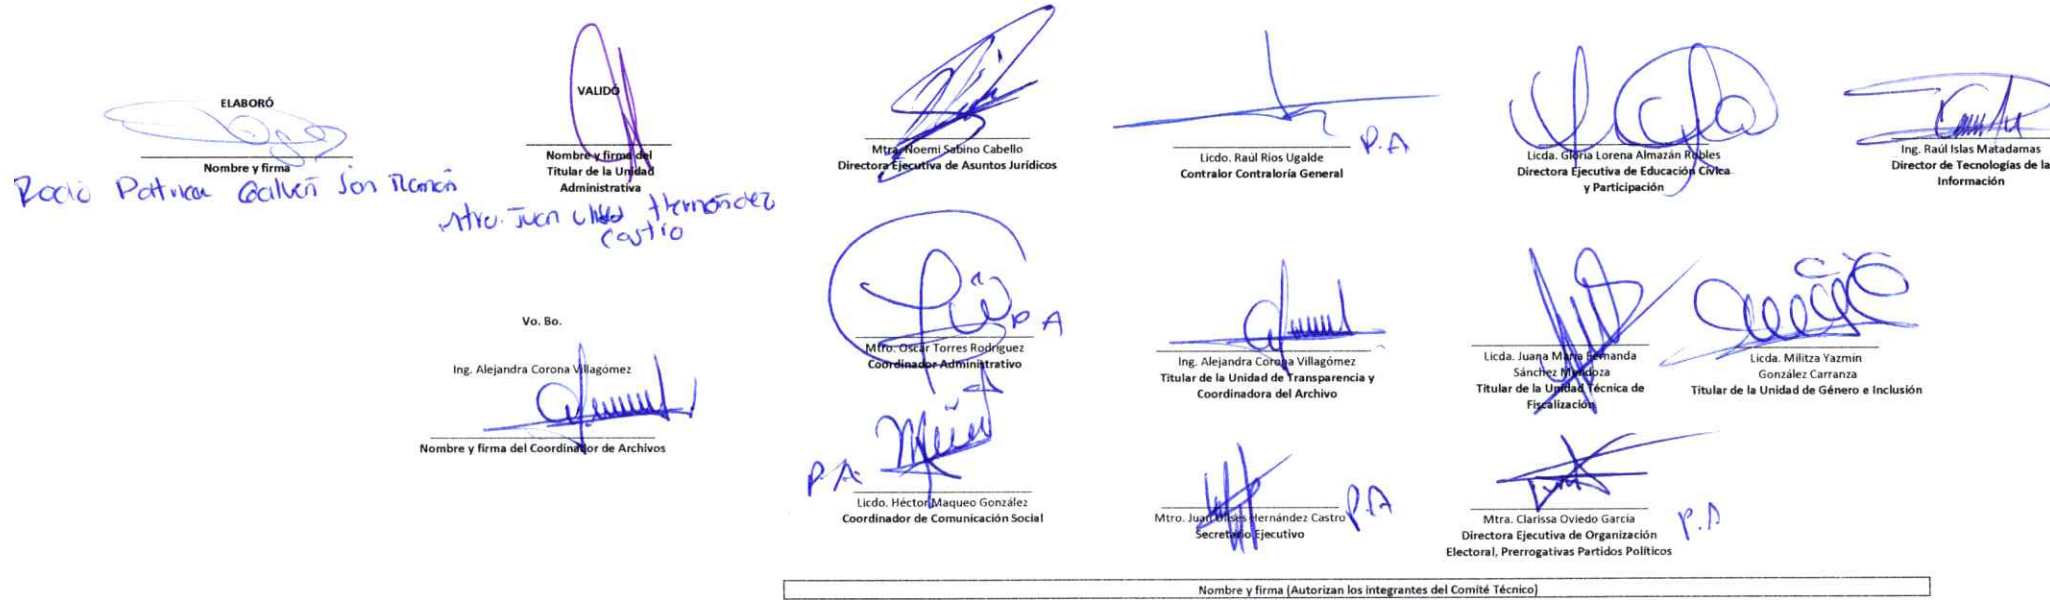 ELABORÓ
Nombre y firma
VALIDÓ
Nombre y firma del
Titular de la Unidad
Administrativa
Mtro. Juan Hernández
Castro
Vo. Bo.
Ing. Alejandra Corona Villagómez
Nombre y firma del Coordinador de Archivos
Mtra. Noemi Sabino Cabello
Directora Ejecutiva de Asuntos Jurídicos
Licdo. Raúl Ríos Ugalde
Contralor Contraloría General
P.A
Licda. Gloria Lorena Almazán Robles
Directora Ejecutiva de Educación Cívica
y Participación
Ing. Raúl Islas Matadamas
Director de Tecnologías de la
Información
P A
Mtro. Oscar Torres Rodríguez
Coordinador Administrativo
Ing. Alejandra Corona Villagómez
Titular de la Unidad de Transparencia y
Coordinadora del Archivo
Licda. Juana María Fernanda
Sánchez Mendoza
Titular de la Unidad Técnica de
Fiscalización
Licda. Militza Yazmin
González Carranza
Titular de la Unidad de Género e Inclusión
P A
Licdo. Héctor Maqueo González
Coordinador de Comunicación Social
Mtro. Juan Ulises Hernández Castro
Secretario Ejecutivo
P.A
Mtra. Clarissa Oviedo García
Directora Ejecutiva de Organización
Electoral, Prerrogativas Partidos Políticos
P.A
Nombre y firma (Autorizan los integrantes del Comité Técnico)